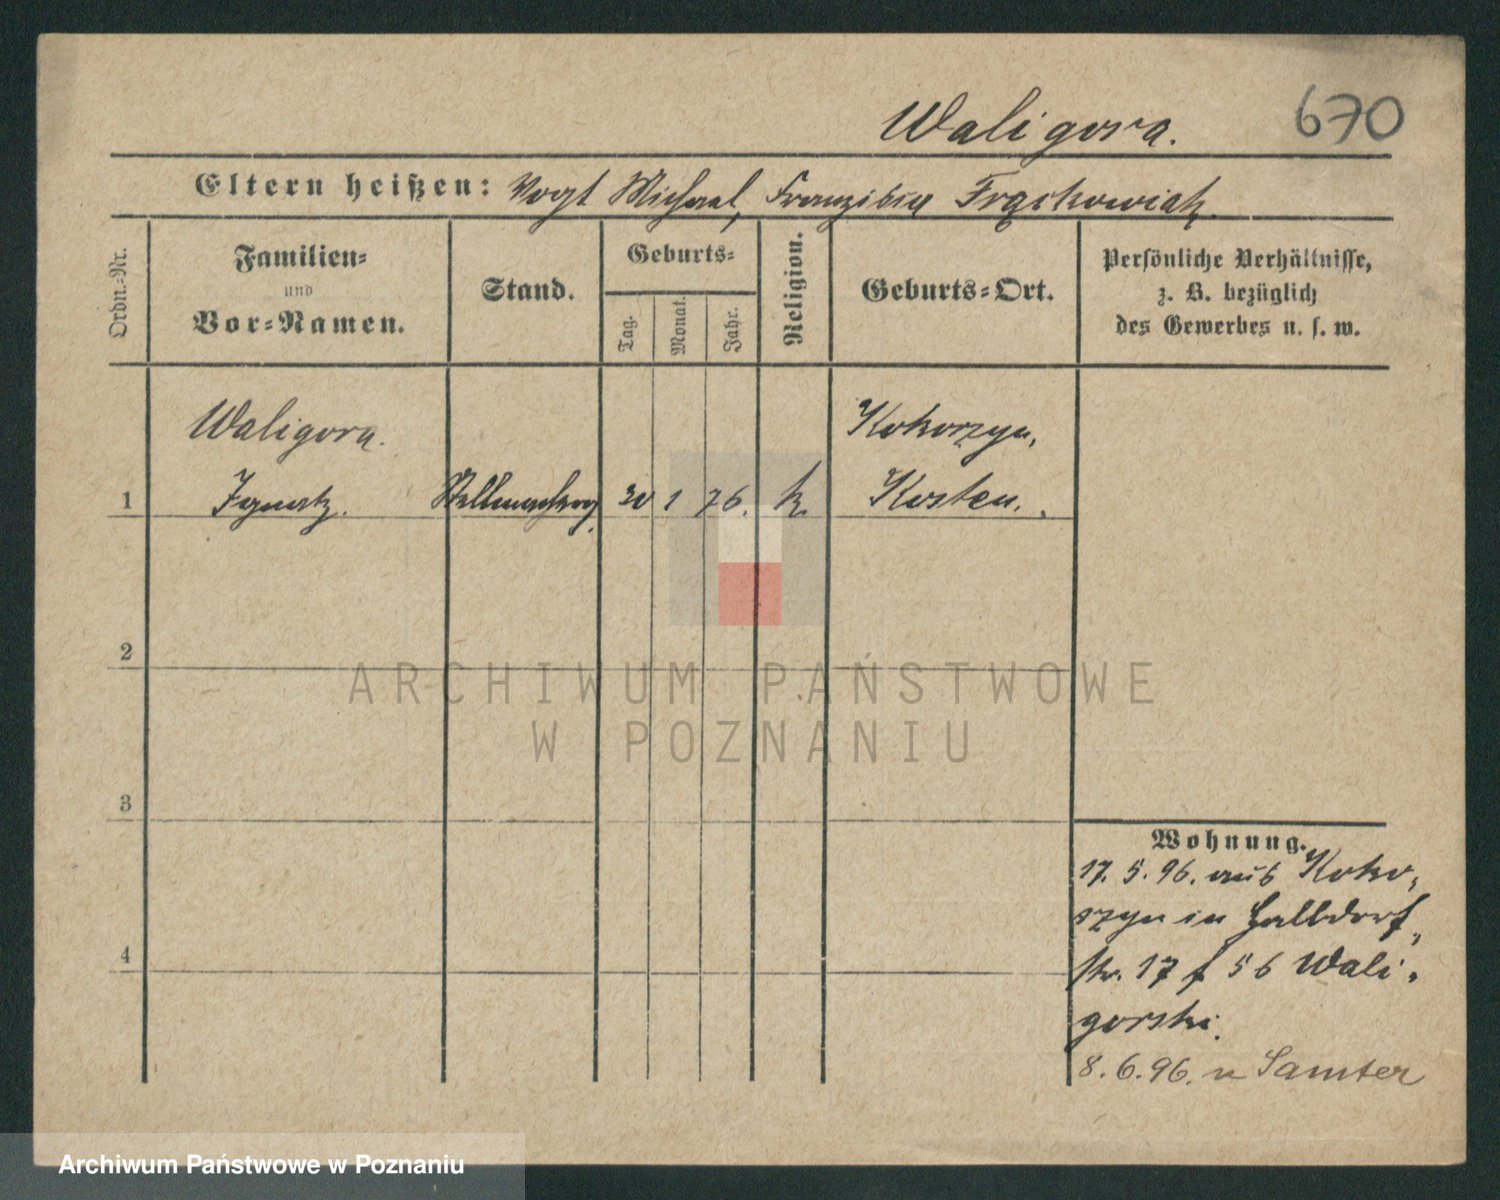 Waligora. 670
Eltern heißen: Vogt Michael, Franziska Frąckowiak.
Ordn.-Nr.
Familien-
und
Vor-Namen.
Stand.
Geburts-
Tag.
Monat.
Jahr.
Religion.
Geburts-Ort.
Persönliche Verhältnisse,
z. B. bezüglich
des Gewerbes u. s. w.
Waligora. Kokorzyn,
1 Ignatz. 30 1 76. k. Kosten.
2
ARCHIWUM PAŃSTWOWE
W POZNANIU
3
Wohnung.
17. 5. 96. aus Koko-
rzyn in Halbdorf-
str. 17 f 56 Wali-
gorski.
4
8. 6. 96. n Samter
Archiwum Państwowe w Poznaniu